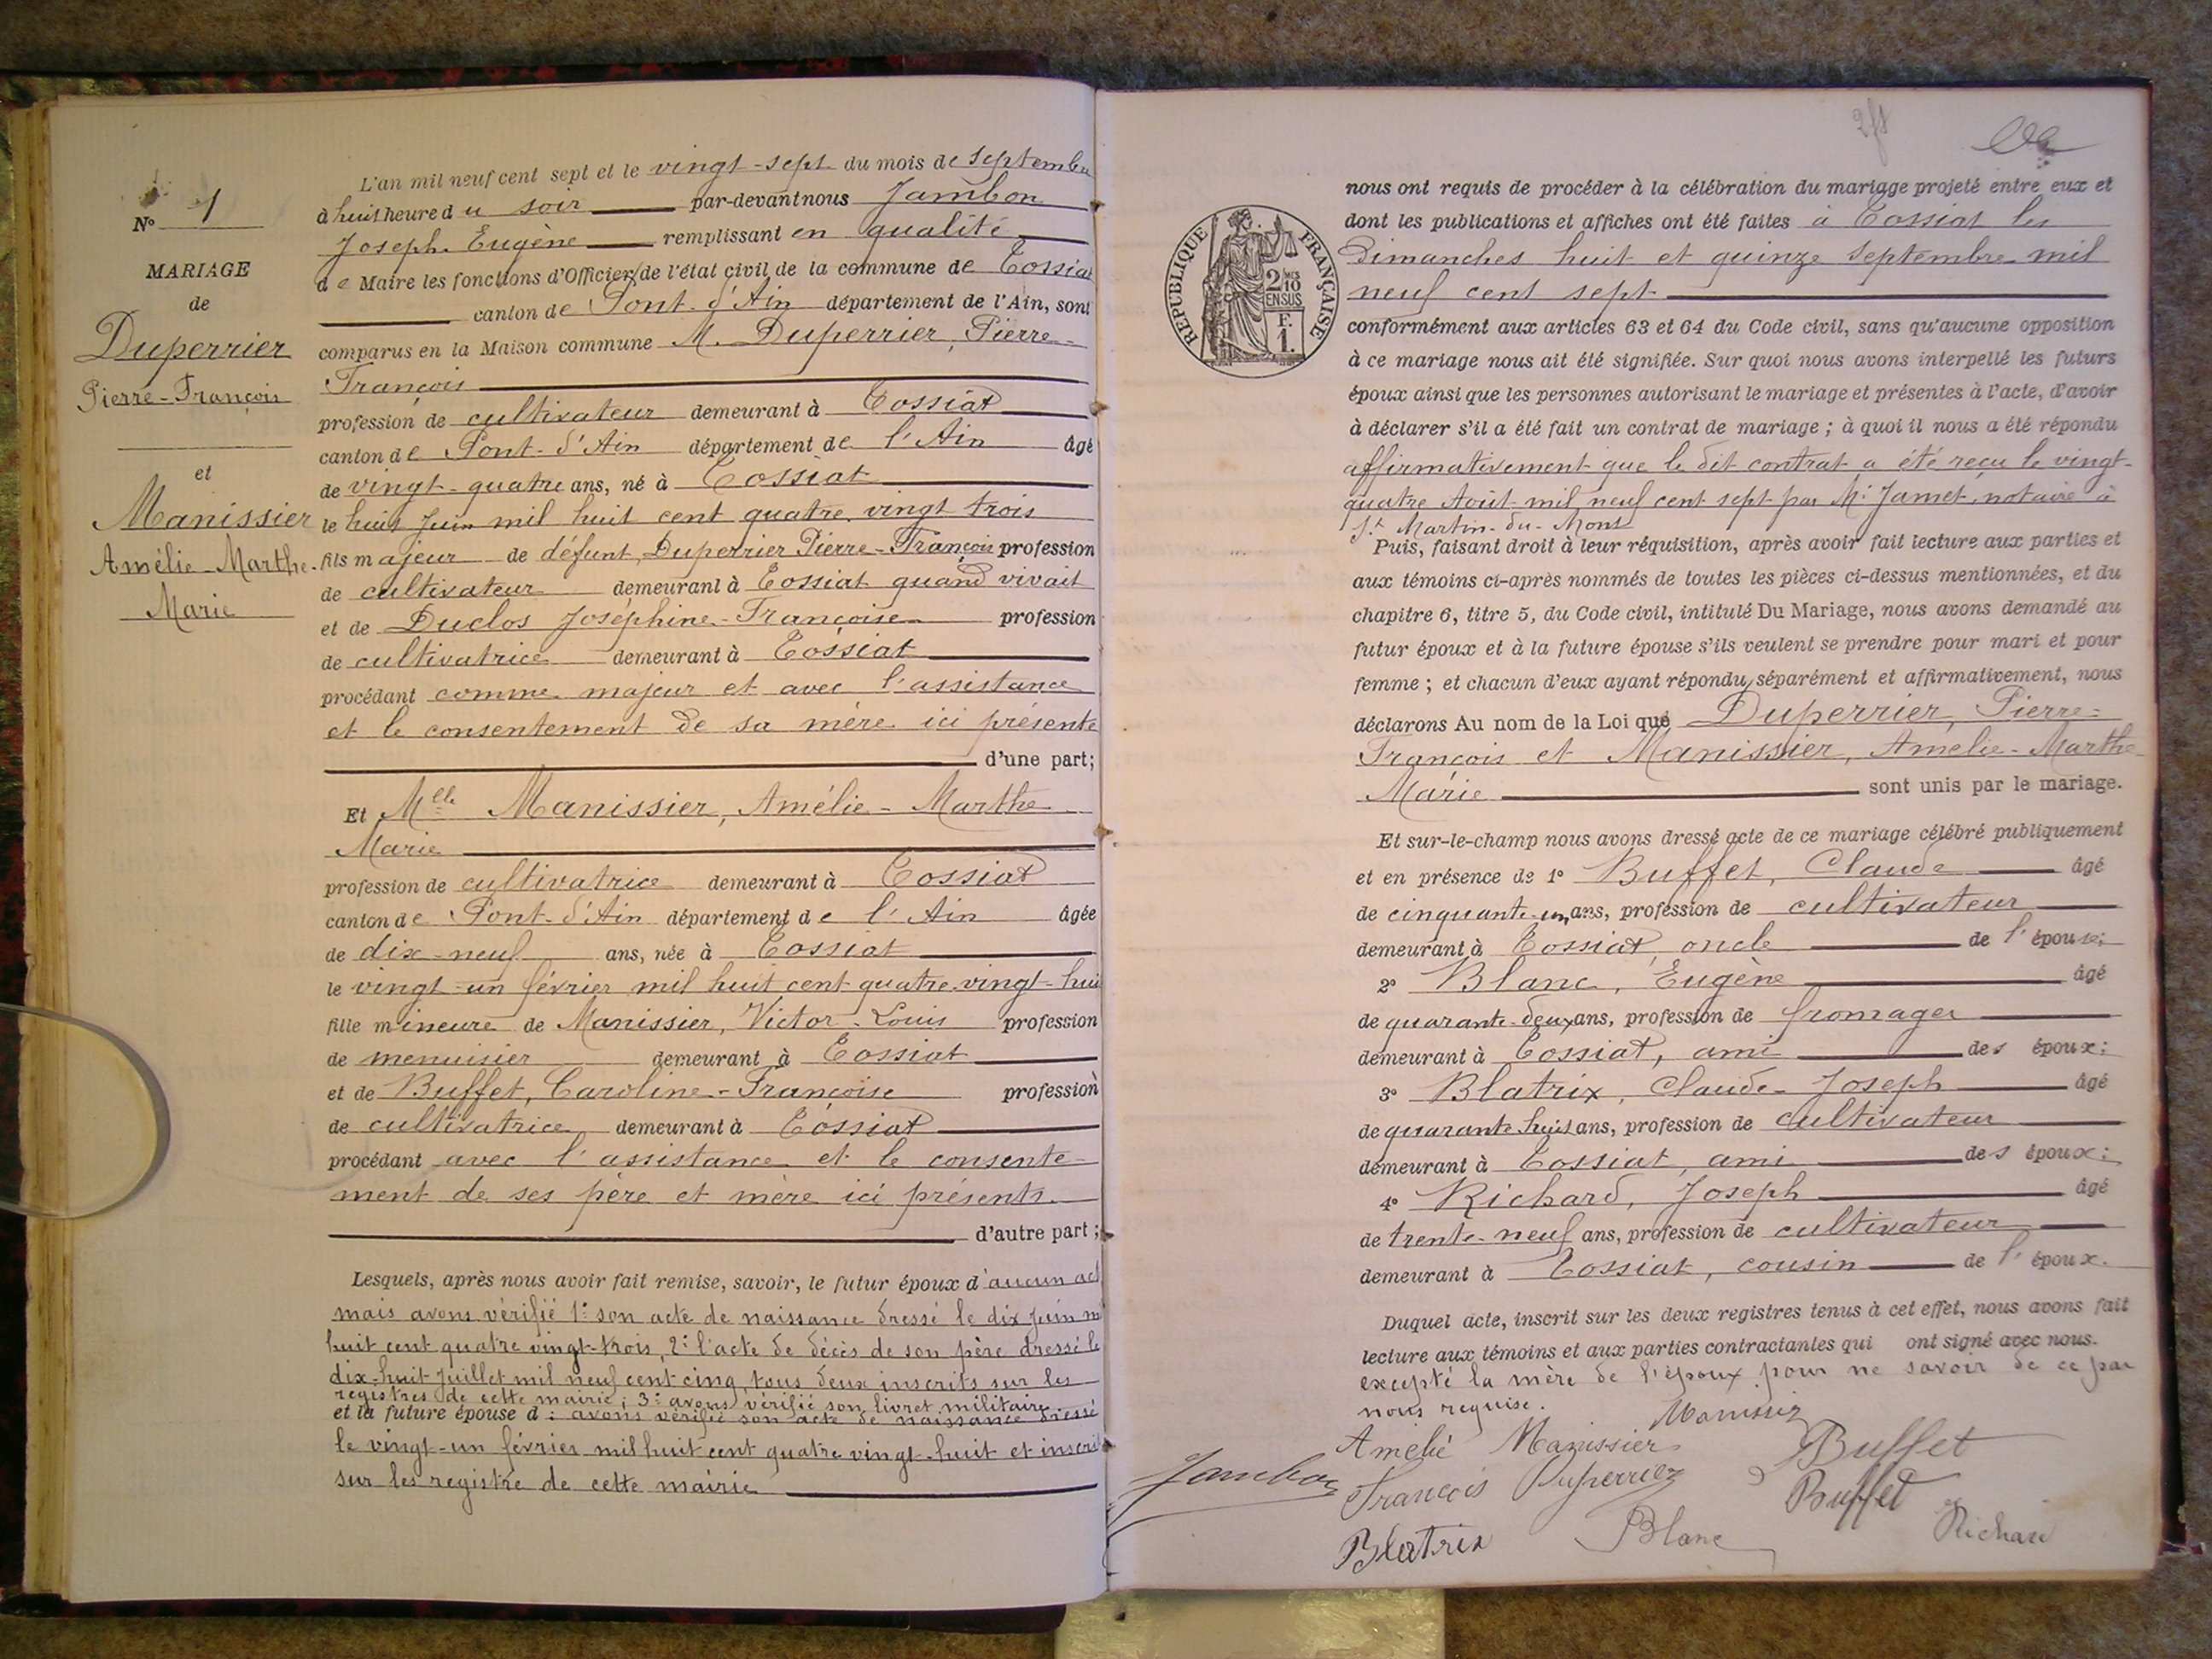 N° 1
MARIAGE
de
Duperrier
Pierre-François
et
Manissier
Amélie-Marthe-
Marie
L'an mil neuf cent sept et le vingt-sept du mois de Septembre
à huit heure du soir par-devant nous Jambon
Joseph Eugène remplissant en qualité
de Maire les fonctions d'Officier de l'état civil de la commune de Tossiat
canton de Pont-d'Ain département de l'Ain, sont
comparus en la Maison commune M. Duperrier, Pierre-
François
profession de cultivateur demeurant à Tossiat
canton de Pont-d'Ain département de l'Ain âgé
de vingt-quatre ans, né à Tossiat
le huit Juin mil huit cent quatre vingt trois
fils majeur de défunt Duperrier Pierre-François profession
de cultivateur demeurant à Tossiat quand vivait
et de Duclos Joséphine-Françoise profession
de cultivatrice demeurant à Tossiat
procédant comme majeur et avec l'assistance
et le consentement de sa mère ici présente
d'une part;
Et Melle Manissier, Amélie-Marthe
Marie
profession de cultivatrice demeurant à Tossiat
canton de Pont-d'Ain département de l'Ain âgée
de dix-neuf ans, née à Tossiat
le vingt-un février mil huit cent quatre-vingt-huit
fille mineure de Manissier, Victor-Louis profession
de menuisier demeurant à Tossiat
et de Buffet, Caroline-Françoise profession
de cultivatrice demeurant à Tossiat
procédant avec l'assistance et le consente-
ment de ses père et mère ici présents.
d'autre part;
Lesquels, après nous avoir fait remise, savoir, le futur époux d'aucun act
mais avons vérifié 1° son acte de naissance dressé le dix Juin m
huit cent quatre vingt-trois, 2° l'acte de décès de son père dressé le
dix-huit Juillet mil neuf cent cinq, tous deux inscrits sur les
registres de cette mairie; 3° avons vérifié son livret militaire
et la future épouse d : avons vérifié son acte de naissance dressé
le vingt-un février mil huit cent quatre vingt-huit et inscrit
sur les registre de cette mairie
RÉPUBLIQUE FRANÇAISE
2/10 MES
EN SUS
F.
1.
nous ont requis de procéder à la célébration du mariage projeté entre eux et
dont les publications et affiches ont été faites à Tossiat les
Dimanches huit et quinze Septembre mil
neuf cent sept
conformément aux articles 63 et 64 du Code civil, sans qu'aucune opposition
à ce mariage nous ait été signifiée. Sur quoi nous avons interpellé les futurs
époux ainsi que les personnes autorisant le mariage et présentes à l'acte, d'avoir
à déclarer s'il a été fait un contrat de mariage; à quoi il nous a été répondu
affirmativement que le dit contrat a été reçu le vingt-
quatre Août mil neuf cent sept par Me Jamet, notaire à
St Martin-du-Mont
Puis, faisant droit à leur réquisition, après avoir fait lecture aux parties et
aux témoins ci-après nommés de toutes les pièces ci-dessus mentionnées, et du
chapitre 6, titre 5, du Code civil, intitulé Du Mariage, nous avons demandé au
futur époux et à la future épouse s'ils veulent se prendre pour mari et pour
femme; et chacun d'eux ayant répondu séparément et affirmativement, nous
déclarons Au nom de la Loi que Duperrier, Pierre-
François et Manissier, Amélie-Marthe
Marie sont unis par le mariage.
Et sur-le-champ nous avons dressé acte de ce mariage célébré publiquement
et en présence de 1° Buffet, Claude âgé
de cinquante-un ans, profession de cultivateur
demeurant à Tossiat, oncle de l'épouse;
2° Blanc, Eugène âgé
de quarante-deux ans, profession de fromager
demeurant à Tossiat, ami des époux;
3° Blatrix, Claude-Joseph âgé
de quarante huit ans, profession de cultivateur
demeurant à Tossiat, ami des époux;
4° Richard, Joseph âgé
de trente-neuf ans, profession de cultivateur
demeurant à Tossiat, cousin de l'époux.
Duquel acte, inscrit sur les deux registres tenus à cet effet, nous avons fait
lecture aux témoins et aux parties contractantes qui ont signé avec nous.
excepté la mère de l'époux pour ne savoir de ce par
nous requise.
Manissier
Amélie Manissier
Buffet
Jambon
François Duperrier
Buffet
Blatrix
Blanc
Richard